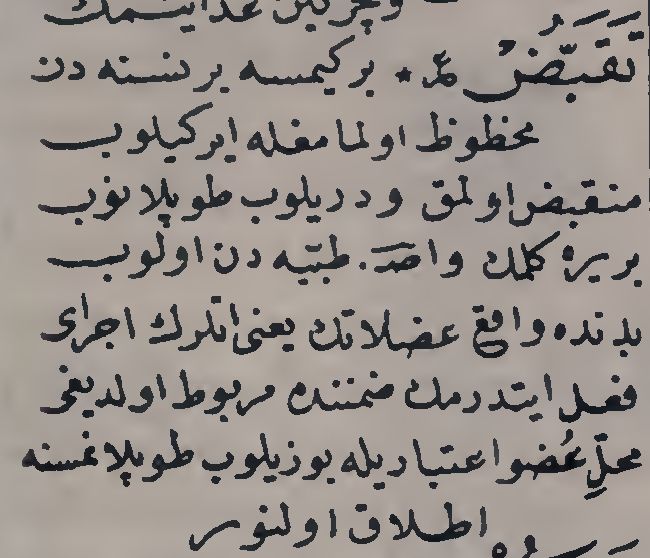 تَقَبُّضْ عر * بر كيمسه بر نسنه دن
محظوظ اولمامغله ايركيلوب
منقبض اولمق و دريلوب طوپلانوب
بر يره كلمك و اصط. طبّيه دن اولوب
بدنده واقع عضلاتك يعنى اتلرك اجراى
فعل ايتدرمك ضمننده مربوط اولديغى
محلِّ عُضو اعتباريله بوزيلوب طوپلانمسنه
اطلاق اولنور